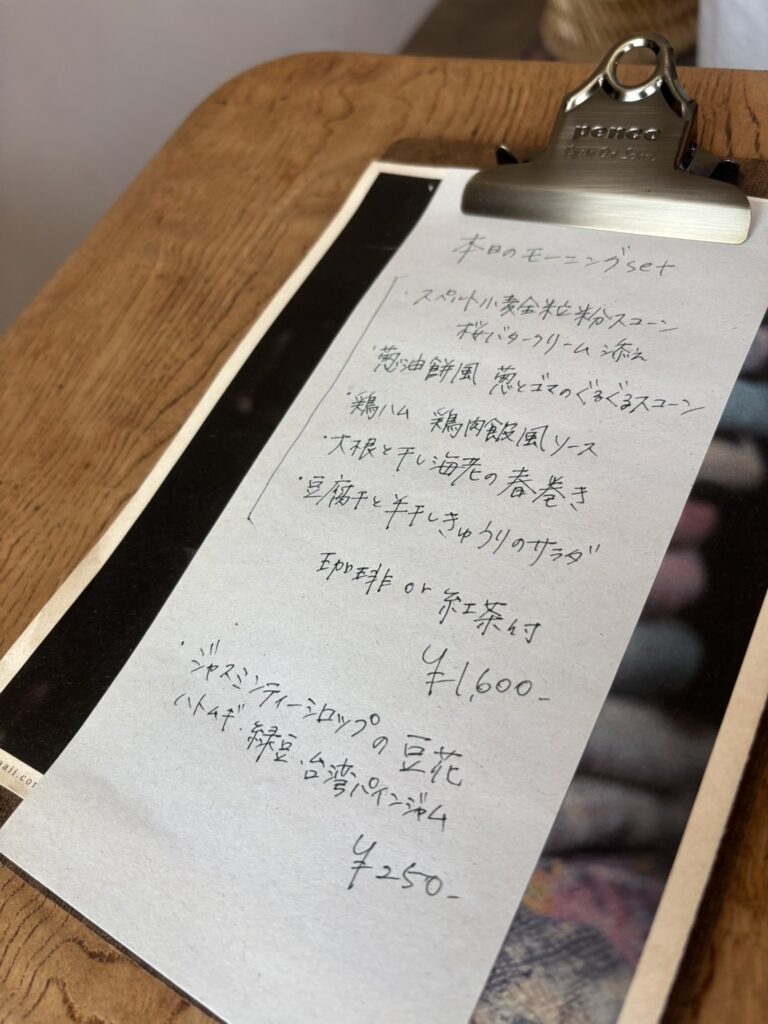 penco
本日のモーニングset
・スペルト小麦全粒粉スコーン
桜バタークリーム添え
・葱油餅風 葱とゴマのぐるぐるスコーン
・鶏ハム 鶏肉飯風ソース
・大根と干し海老の春巻き
・豆腐干と半干しきゅうりのサラダ
珈琲 or 紅茶付
¥1,600-
・ジャスミンティーシロップの豆花
ハトムギ・緑豆・台湾パインジャム
¥250-
ail.com